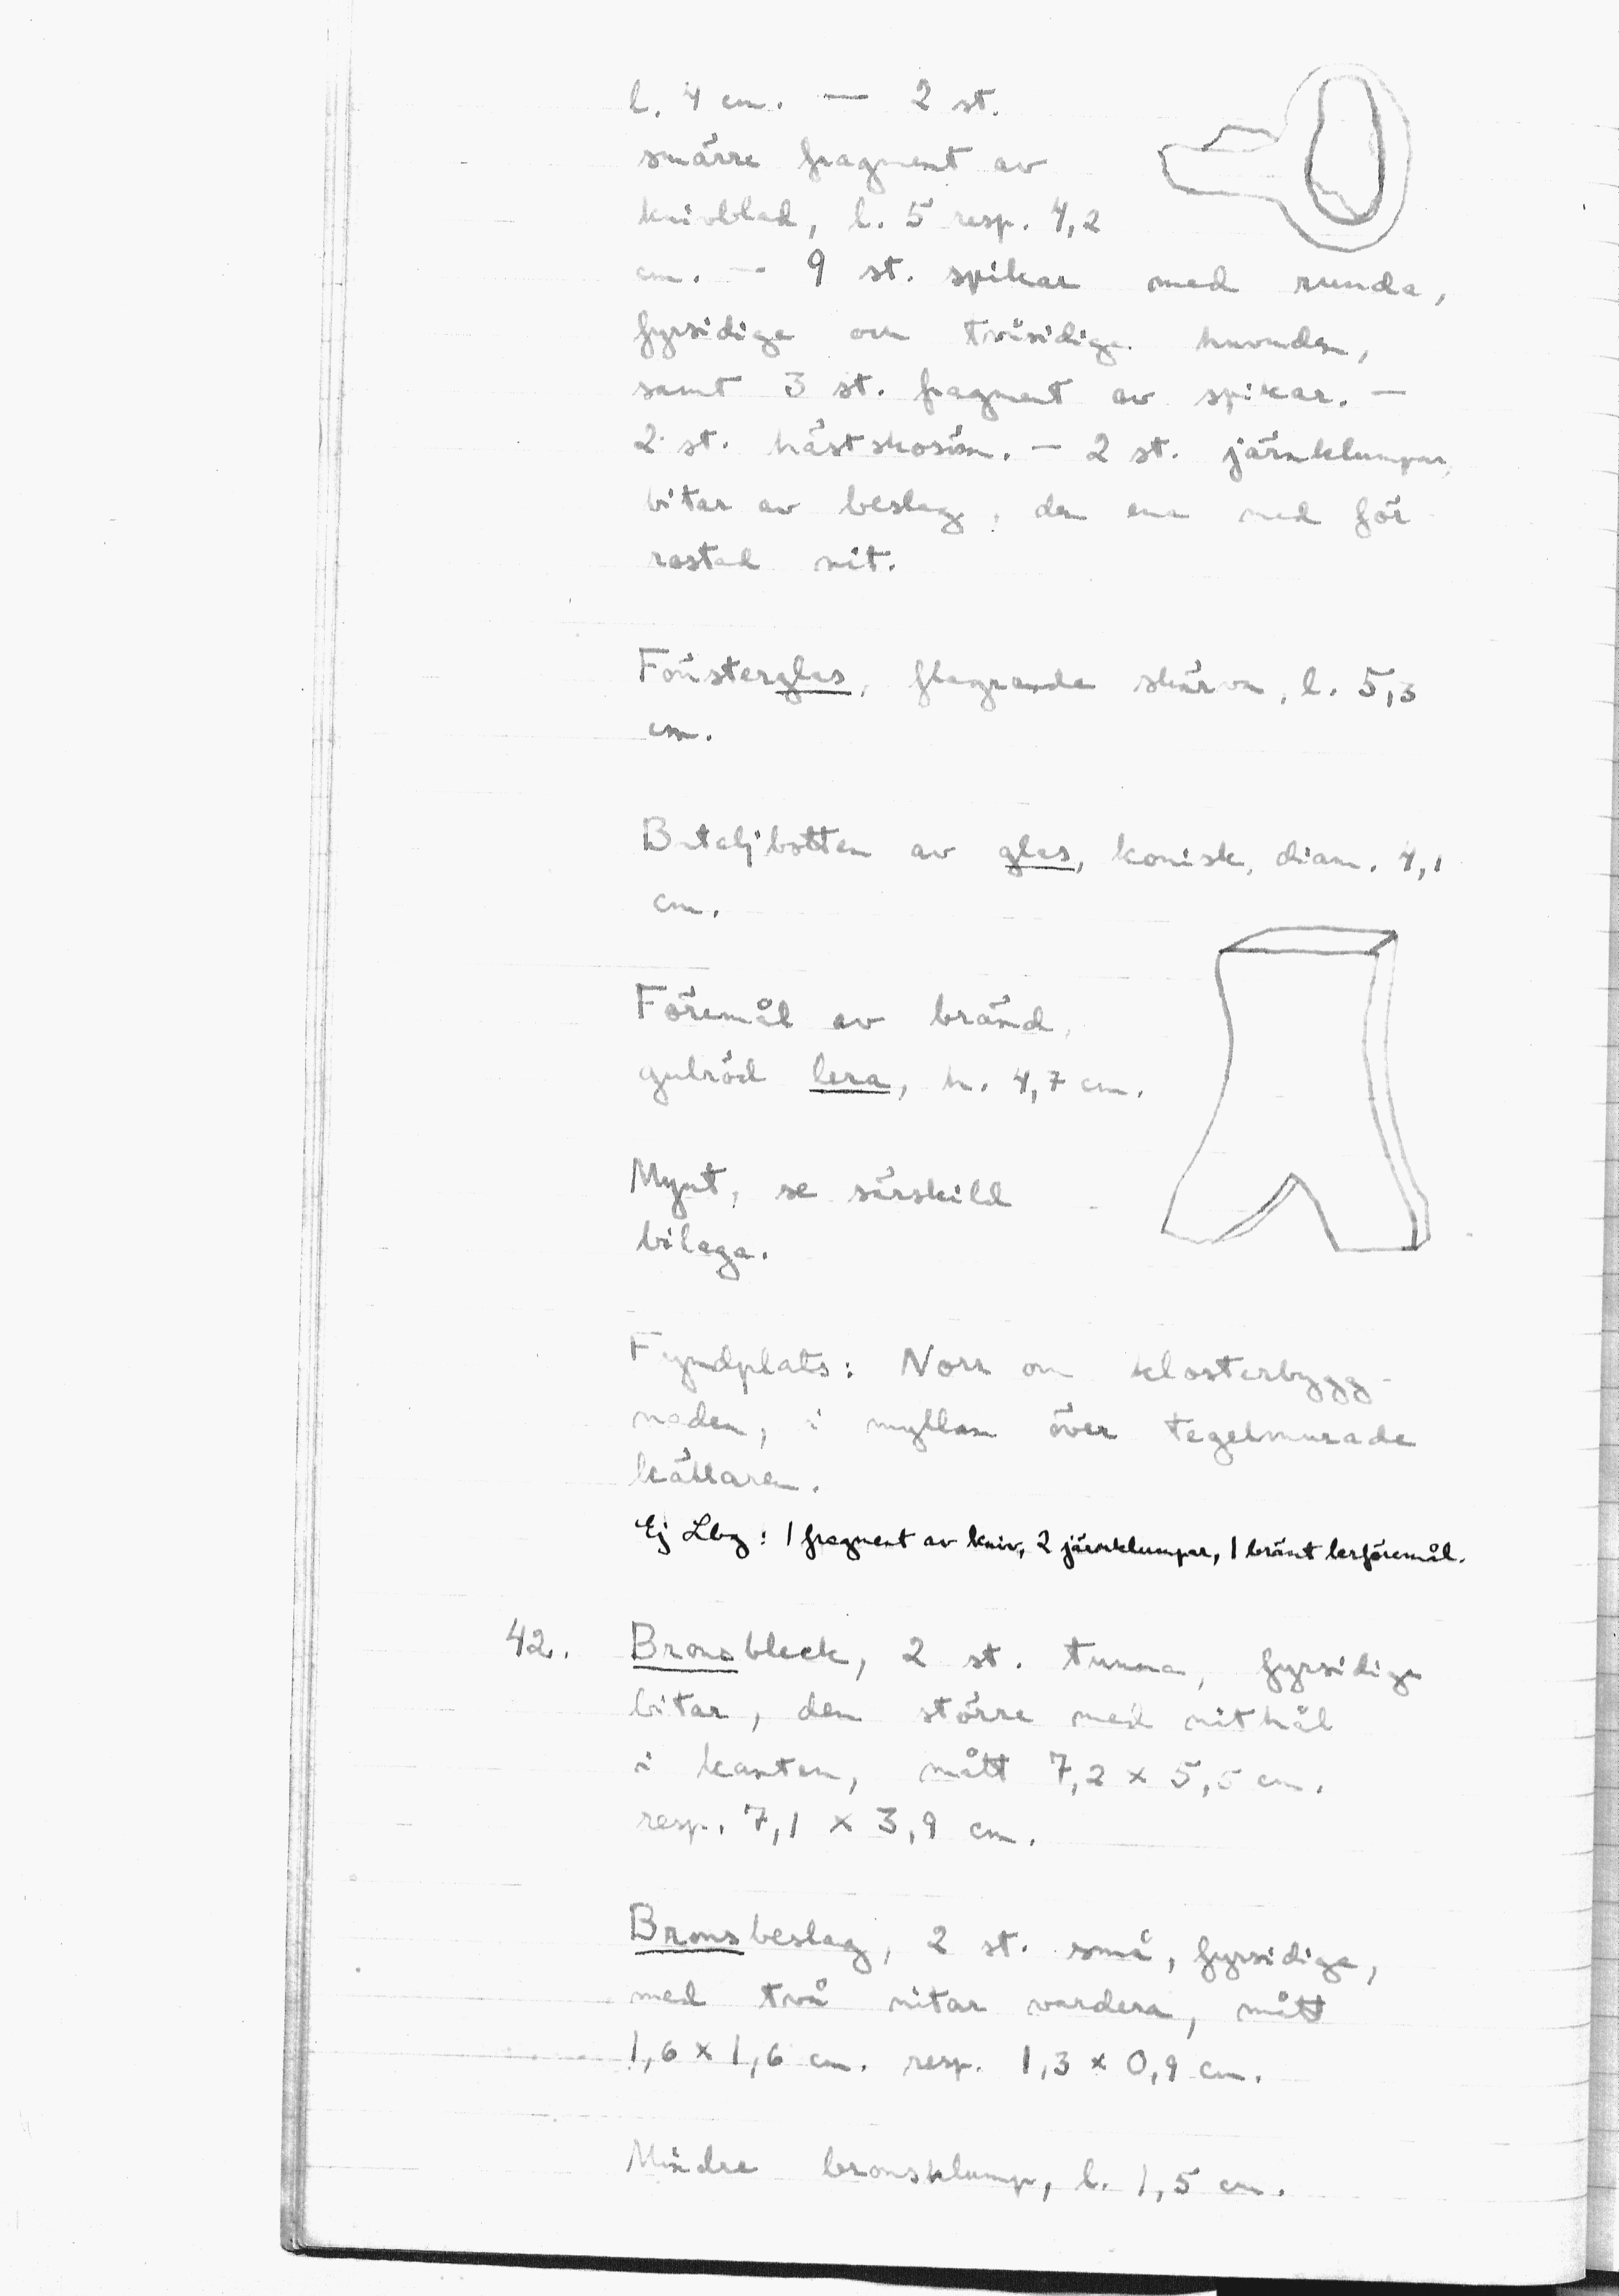 l. 4 cm. — 2 st.
smärre fragment av
knivblad, l. 5 resp. 4,2
cm. — 9 st. spikar med runda,
fyrsidiga och tvåsidiga huvuden,
samt 3 st. fragment av spikar. —
2 st. hästskosöm. — 2 st. järnklumpar,
bitar av beslag, den ena med för
rostad nit.
Fönsterglas, flagrande skärva, l. 5,3
cm.
Buteljbotten av glas, konisk, diam. 4,1
cm.
Föremål av bränd,
gulröd lera, h. 4,7 cm.
Mynt, se särskild
bilaga.
Fyndplats: Norr om klosterbygg-
naden, i myllan över tegelmurade
källaren.
Ej Lbg: 1 fragment av kniv, 2 järnklumpar, 1 bränt lerföremål.
42. Bronsbleck, 2 st. tunna, fyrsidiga
bitar, den större med nithål
i kanten, mått 7,2 x 5,5 cm.
resp. 7,1 x 3,9 cm.
Bronsbeslag, 2 st. små, fyrsidiga,
med två nitar vardera, mått
1,6 x 1,6 cm. resp. 1,3 x 0,9 cm.
Mindre bronsklump, l. 1,5 cm.